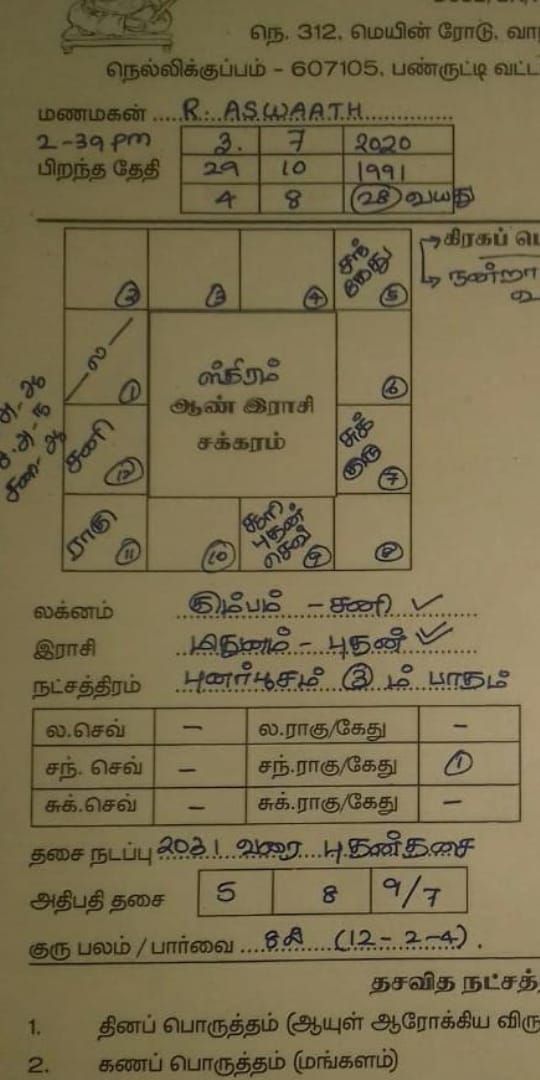 நெ. 312, மெயின் ரோடு,
நெல்லிக்குப்பம் - 607105, பண்ருட்டி
மணமகன் ..... R. ASWAATH
2-39 pm 3. 7 2020
பிறந்த தேதி 29 10 1991
4 8 (28) வயது
கிரகப்
2 3 4 சந் கேது 5
நன்றா
ல 1
ஸ்திரம்
ஆண் இராசி
சக்கரம்
6
சனி 12
சுக் குரு 7
ராகு 11 10 சூரி புதன் செவ் 9 8
லக்னம் கும்பம் - சனி ✓
இராசி மிதுனம் - புதன் ✓
நட்சத்திரம் புனர்பூசம் 3 ம் பாதம்
ல.செவ் - ல.ராகு/கேது -
சந். செவ் - சந்.ராகு/கேது 1
சுக்.செவ் - சுக்.ராகு/கேது -
தசை நடப்பு 2031 வரை புதன் தசை
அதிபதி தசை 5 8 9/7
குரு பலம் / பார்வை (12-2-4).
தசவித
1. தினப் பொருத்தம் (ஆயுள் ஆரோக்கிய
2. கணப் பொருத்தம் (மங்களம்)